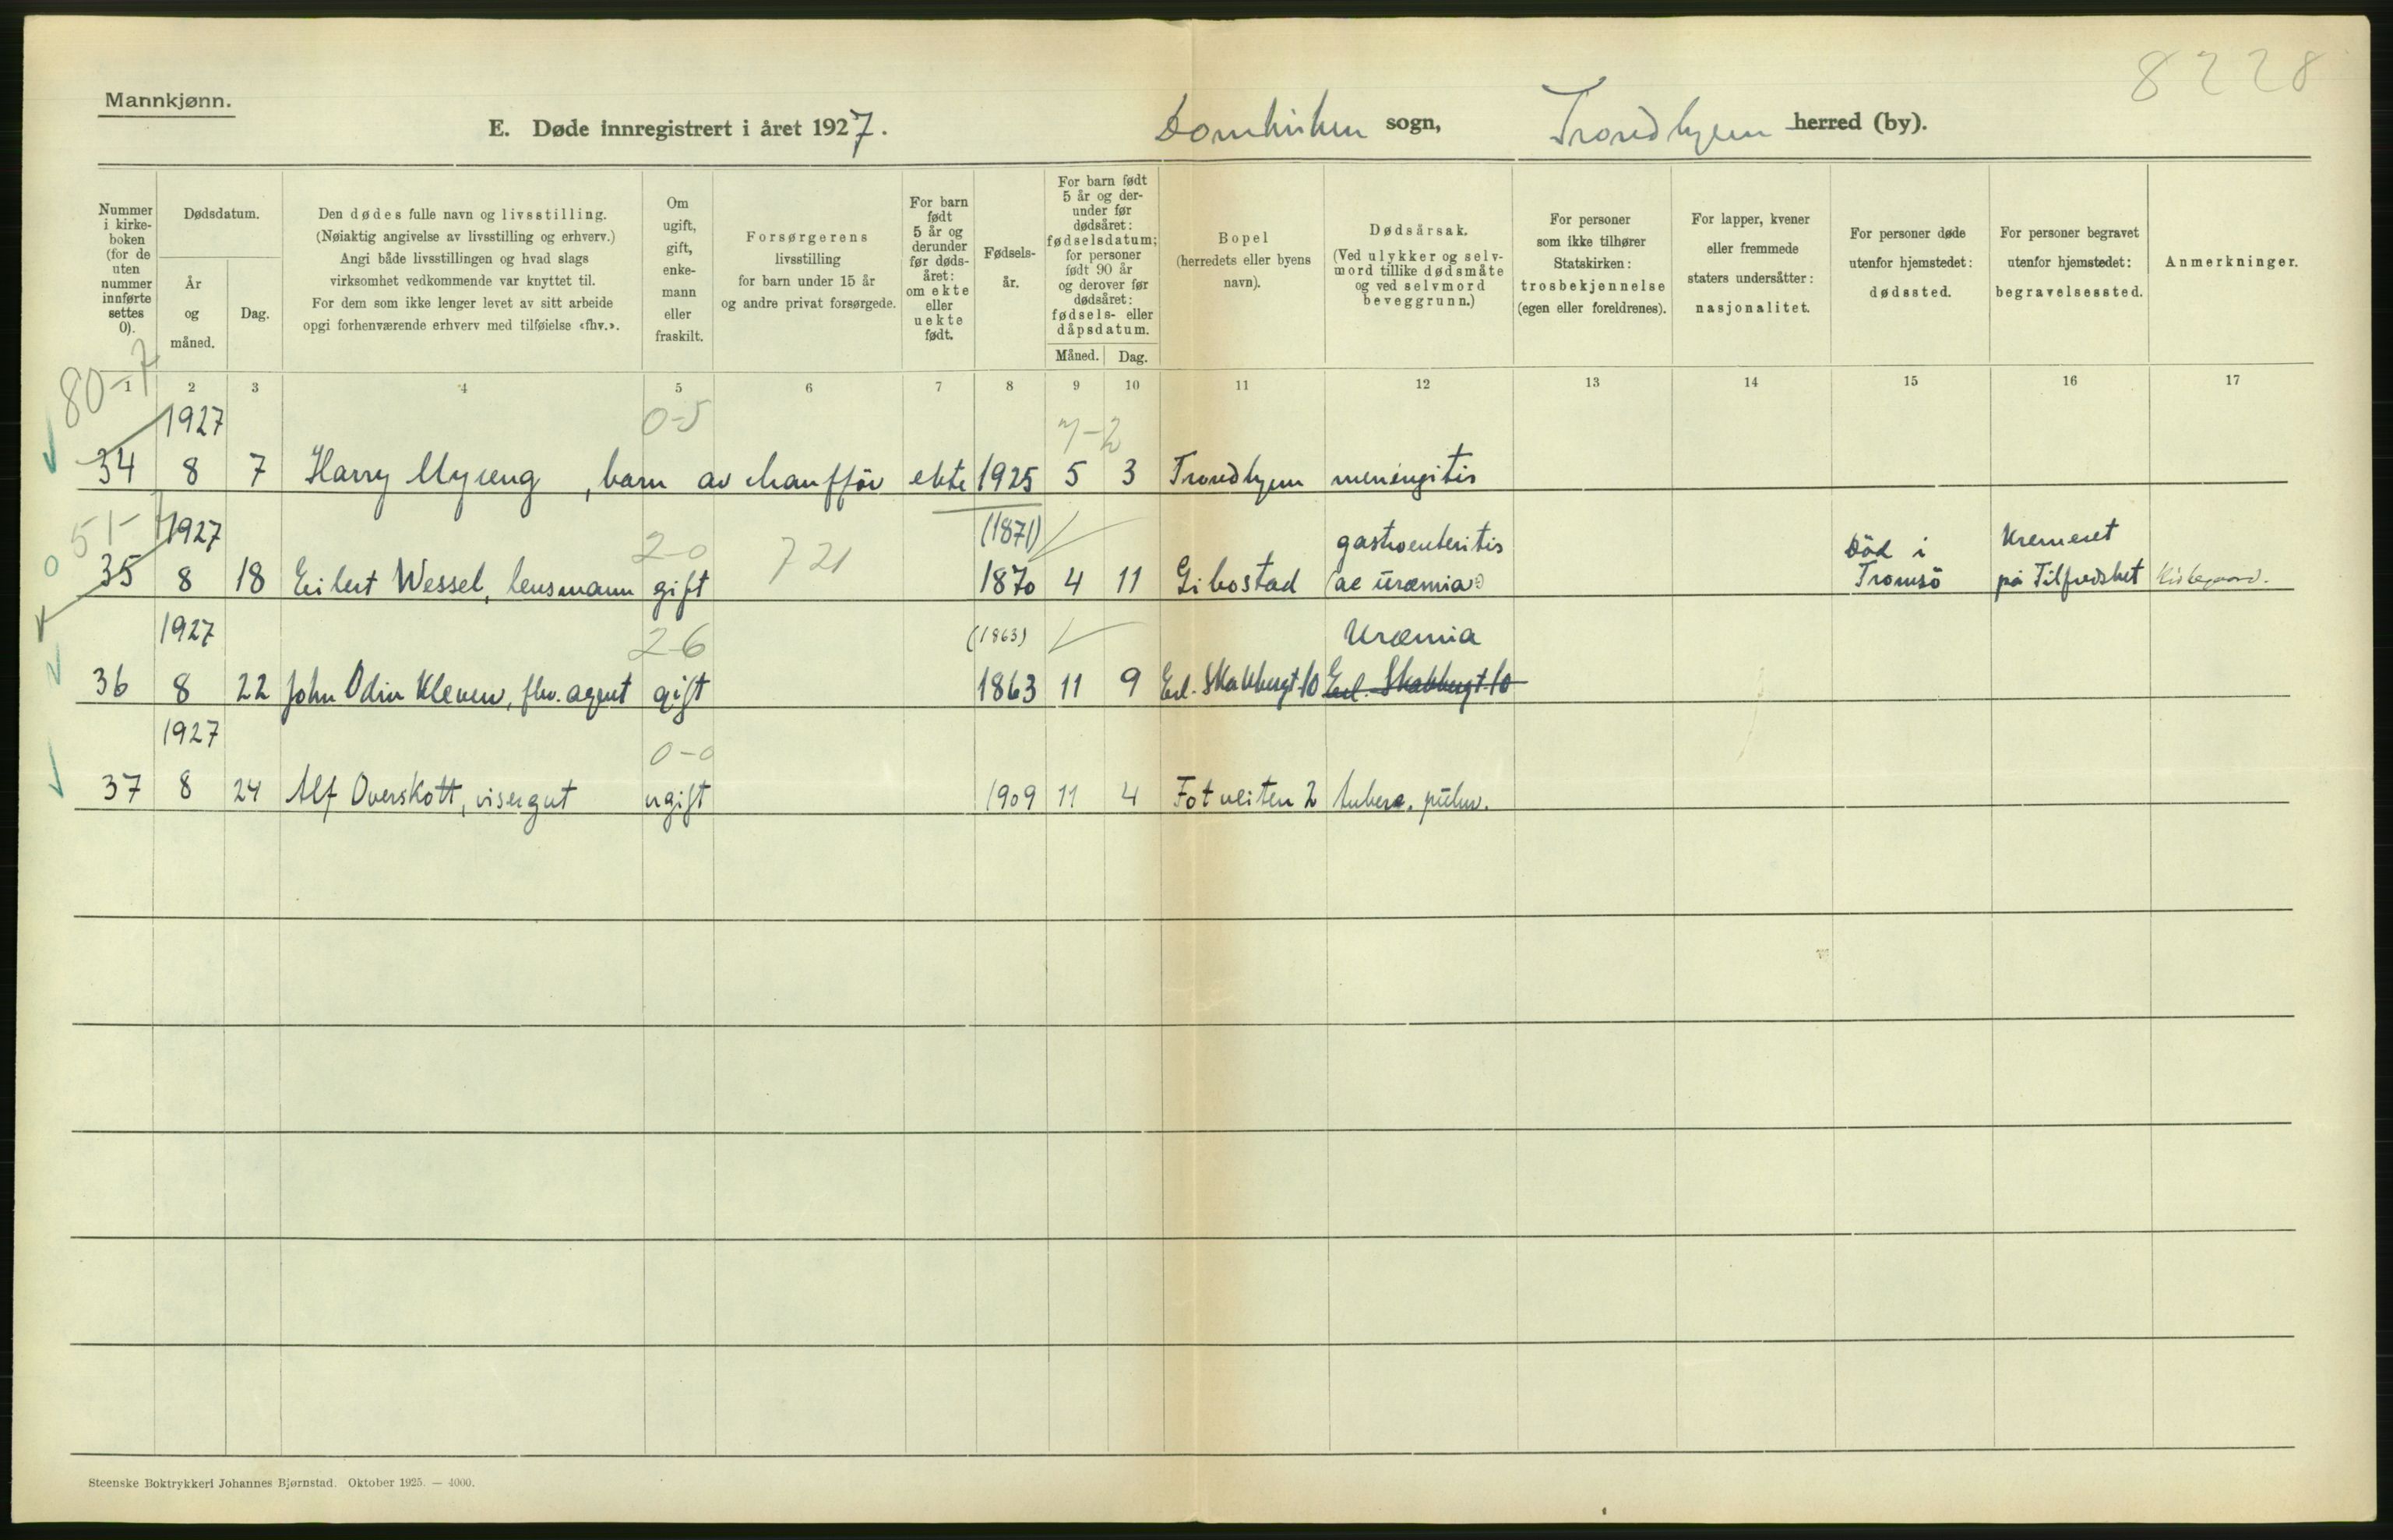 8228
Mannkjønn.
E. Døde innregistrert i året 1927. Domkirken sogn, Trondhjem herred (by).
Nummer i kirke- boken (for de uten nummer innførte settes 0).
Dødsdatum.
År og måned.
Dag.
Den dødes fulle navn og livsstilling.
(Nøiaktig angivelse av livsstilling og erhverv.)
Angi både livsstillingen og hvad slags
virksomhet vedkommende var knyttet til.
For dem som ikke lenger levet av sitt arbeide
opgi forhenværende erhverv med tilføielse «fhv.».
Om ugift, gift, enke- mann eller fraskilt.
Forsørgerens
livsstilling
for barn under 15 år
og andre privat forsørgede.
For barn født 5 år og derunder før døds- året: om ekte eller uekte født.
Fødsels- år.
For barn født 5 år og der- under før dødsåret: fødselsdatum; for personer født 90 år og derover før dødsåret: fødsels- eller dåpsdatum.
Måned. Dag.
Bopel
(herredets eller byens
navn).
Dødsårsak.
(Ved ulykker og selv-
mord tillike dødsmåte
og ved selvmord
beveggrunn.)
For personer
som ikke tilhører
Statskirken:
trosbekjennelse
(egen eller foreldrenes).
For lapper, kvener
eller fremmede
staters undersåtter:
nasjonalitet.
For personer døde
utenfor hjemstedet:
dødssted.
For personer begravet
utenfor hjemstedet:
begravelsessted.
Anmerkninger.
1 2 3 4 5 6 7 8 9 10 11 12 13 14 15 16 17
80-7
1927 0-5 7-2
34 8 7 Harry Myreng, barn av chauffør ekte 1925 5 3 Trondhjem meningitis
51- 1927 2-0 721 (1871) gastroenteritis Død i Kremeret
35 8 18 Eilert Wessel, lensmann gift 1870 4 11 Gibostad (ac uræmia) Tromsö på Tilfredshet Kirkegaard.
1927 2-6 (1863) Uræmia
36 8 22 John Odin Kleven, fhv. agent gift 1863 11 9 Erl. Skakkesgt. 10 Erl. Skakkesgt. 10
1927 0-0
37 8 24 Alf Overskott, visergut ugift 1909 11 4 Fotveiten 2 tuberc. pulm.
Steenske Boktrykkeri Johannes Bjørnstad. Oktober 1925. — 4000.